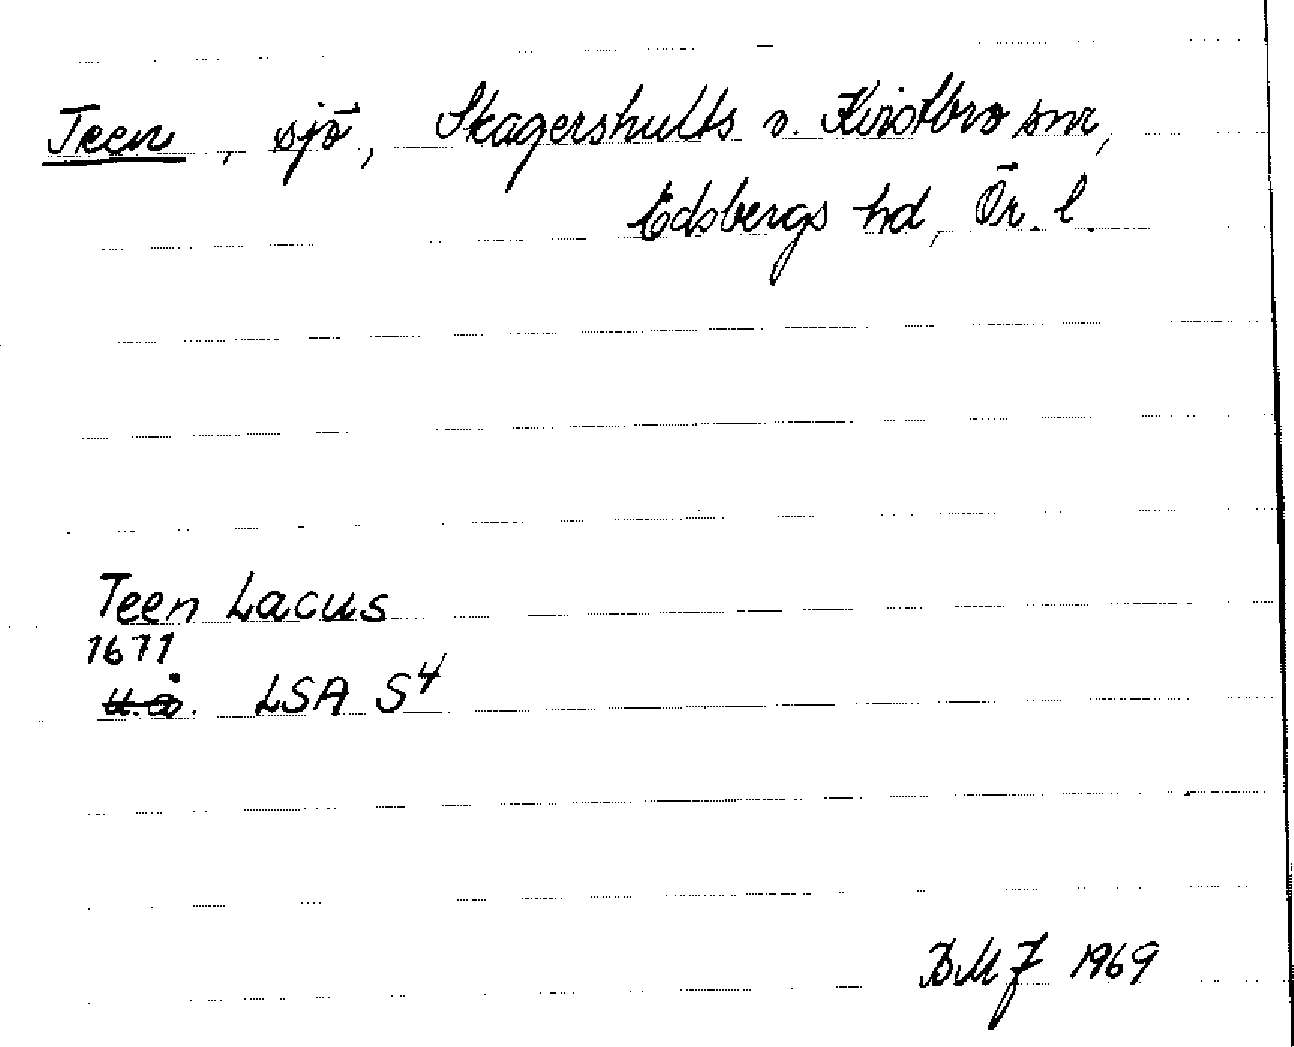 Teen, sjö, Skagershults o. Kvistbro snr,
Edsbergs hd, Ör. l.
Teen Lacus
1671
u.å. LSA S4
BMJ 1969